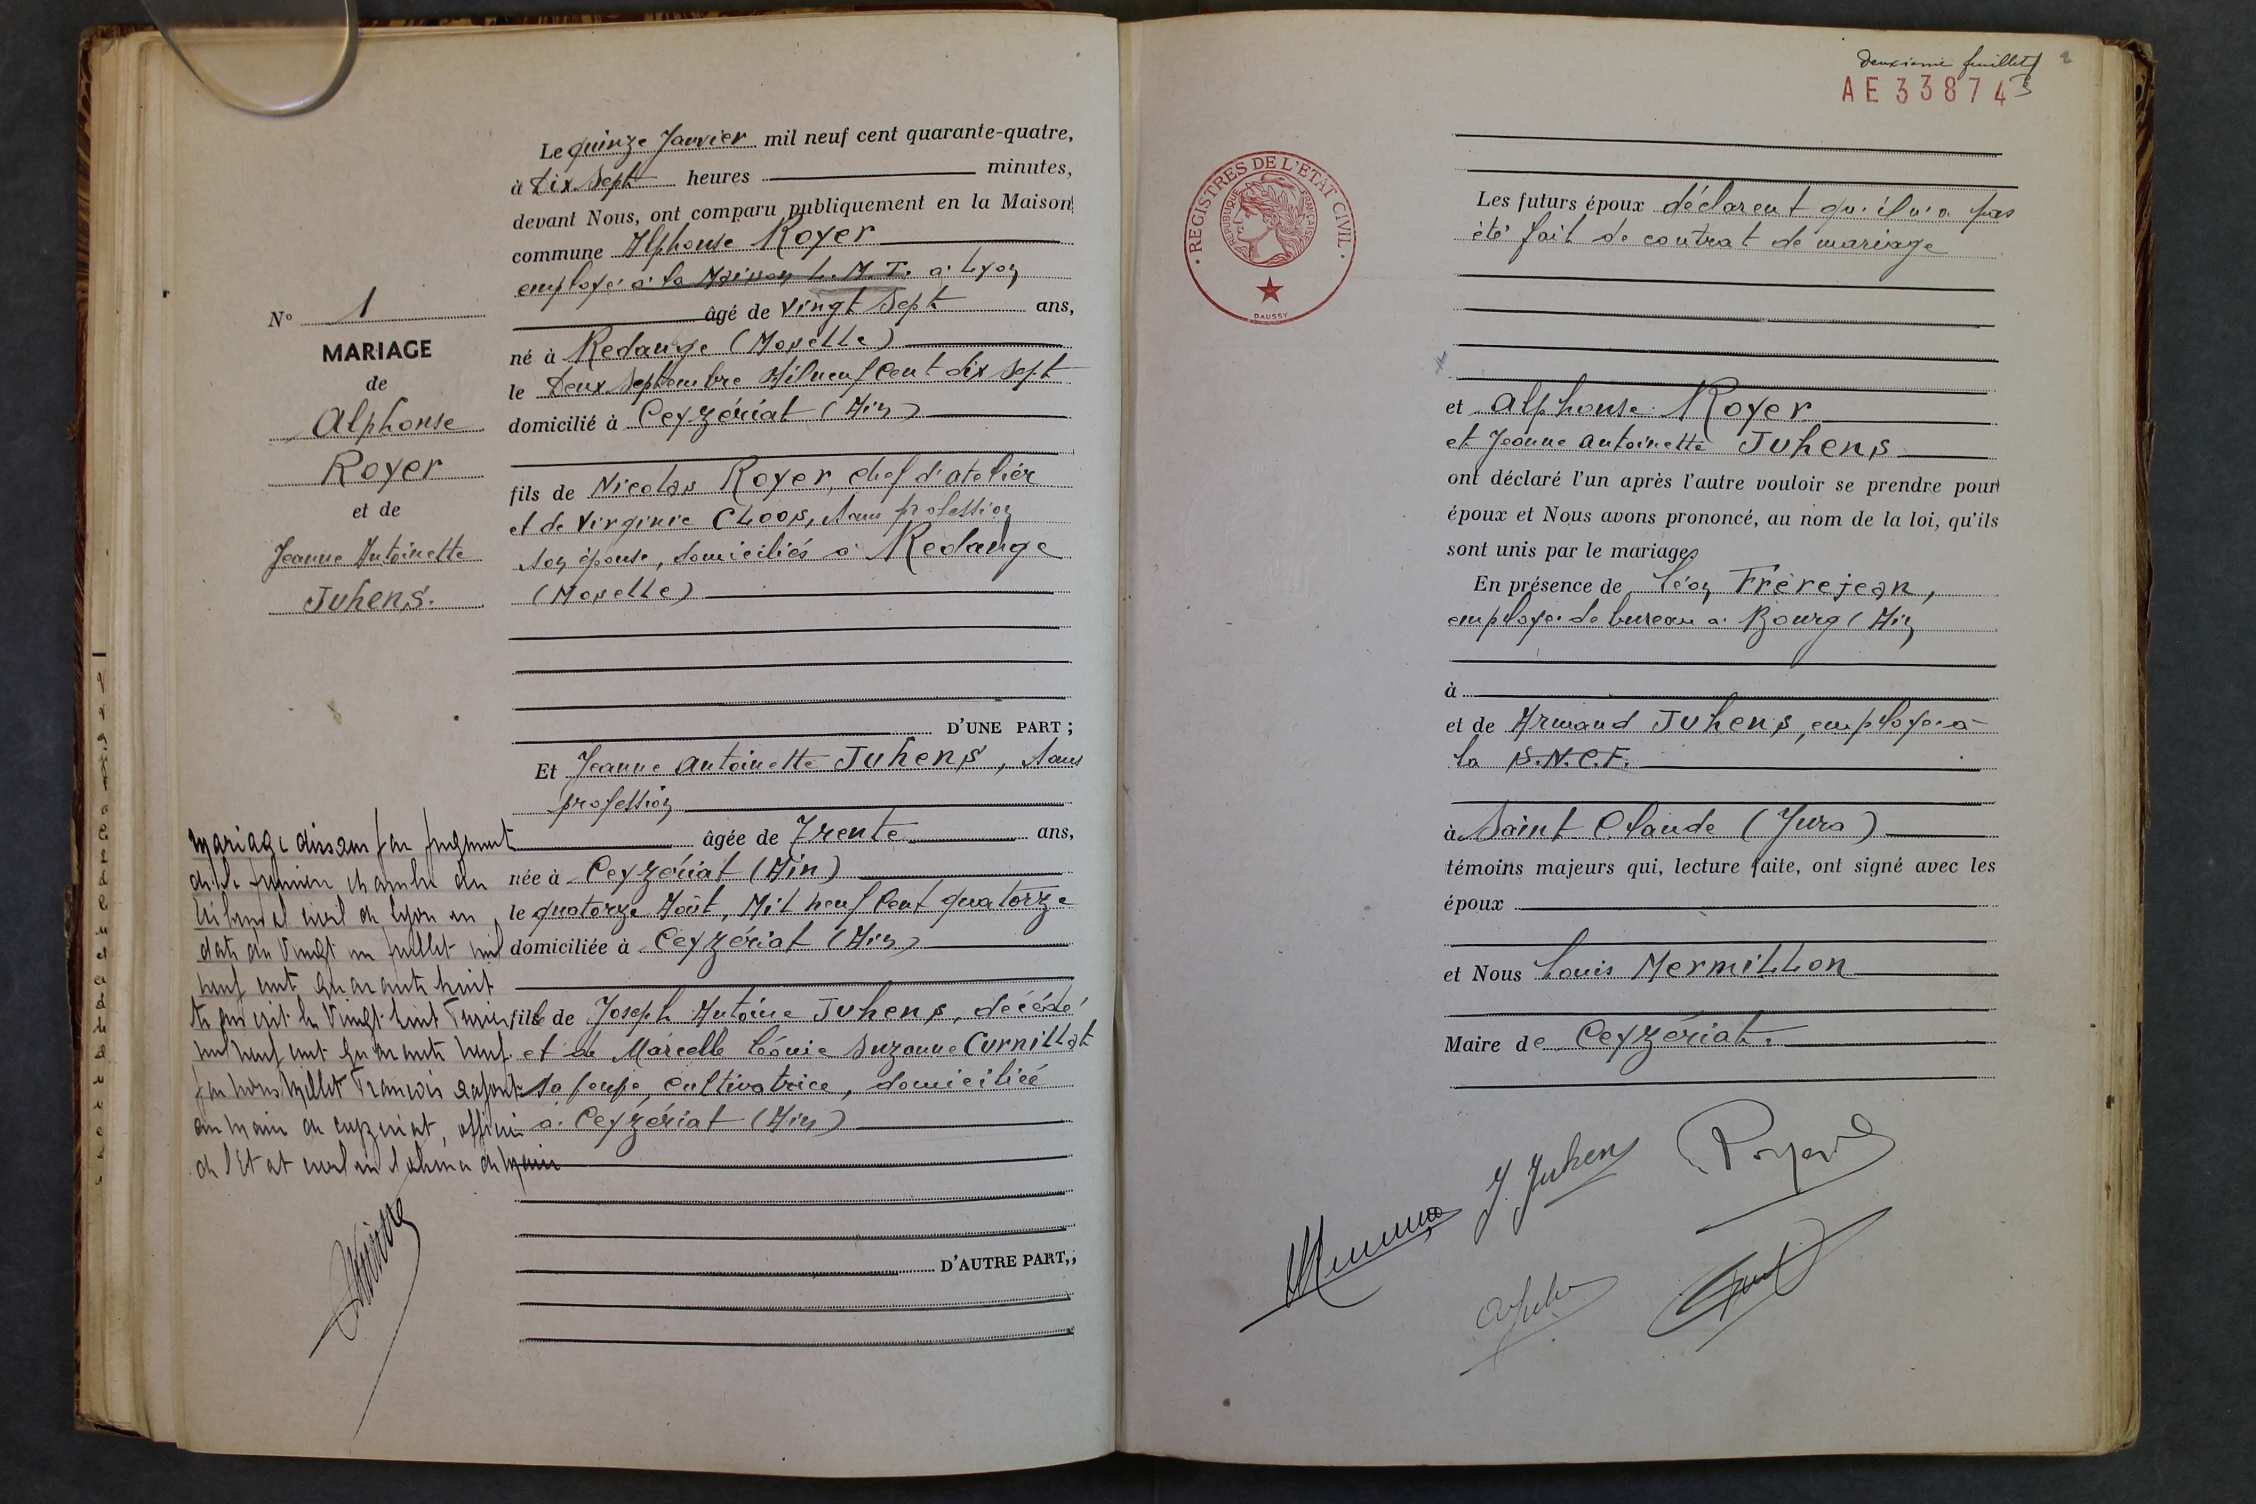 N° 1
MARIAGE
de
Alphonse
Royer
et de
Jeanne Antoinette
Juhens.
Mariage dissous par jugement
de la première chambre du
tribunal civil de Lyon en
date du Vingt un Juillet mil
neuf cent quarante huit
Transcrit le Vingt huit
mil neuf cent quarante neuf
par nous Millet François adjoint
au maire de Ceyzériat, officier
de l'Etat civil en l'absence du Maire
Le quinze Janvier mil neuf cent quarante-quatre,
à Dix Sept heures minutes,
devant Nous, ont comparu publiquement en la Maison
commune Alphonse Royer
employé à la Maison L.M.T. à Lyon
âgé de Vingt Sept ans,
né à Redange (Moselle)
le Deux Septembre Mil neuf Cent dix Sept
domicilié à Ceyzériat (Ain)
fils de Nicolas Royer, chef d'atelier
et de Virginie CLOOS, sans profession
son épouse, domiciliés à Redange
(Moselle)
D'UNE PART ;
Et Jeanne Antoinette Juhens, sans
profession
âgée de Trente ans,
née à Ceyzériat (Ain)
le quatorze Août, Mil neuf Cent quatorze
domiciliée à Ceyzériat (Ain)
fille de Joseph Antoine Juhens, décédé
et de Marcelle Léonie Suzanne Curnillat
sa femme, cultivatrice, domiciliée
à Ceyzériat (Ain)
D'AUTRE PART,
deuxième feuillet 2
AE 338743
REGISTRES DE L'ETAT CIVIL
REPUBLIQUE FRANÇAISE
DAUSSY
Les futurs époux déclarent qu'il n'a pas
été fait de contrat de mariage
et Alphonse Royer
et Jeanne Antoinette Juhens
ont déclaré l'un après l'autre vouloir se prendre pour
époux et Nous avons prononcé, au nom de la loi, qu'ils
sont unis par le mariage
En présence de Léon Frèrejean,
employé de bureau à Bourg (Ain
à
et de Armand Juhens, employé à
la S.N.C.F.
à Saint Claude (Jura)
témoins majeurs qui, lecture faite, ont signé avec les
époux
et Nous Louis Mermillon
Maire de Ceyzériat.
J. Juhens
Royer